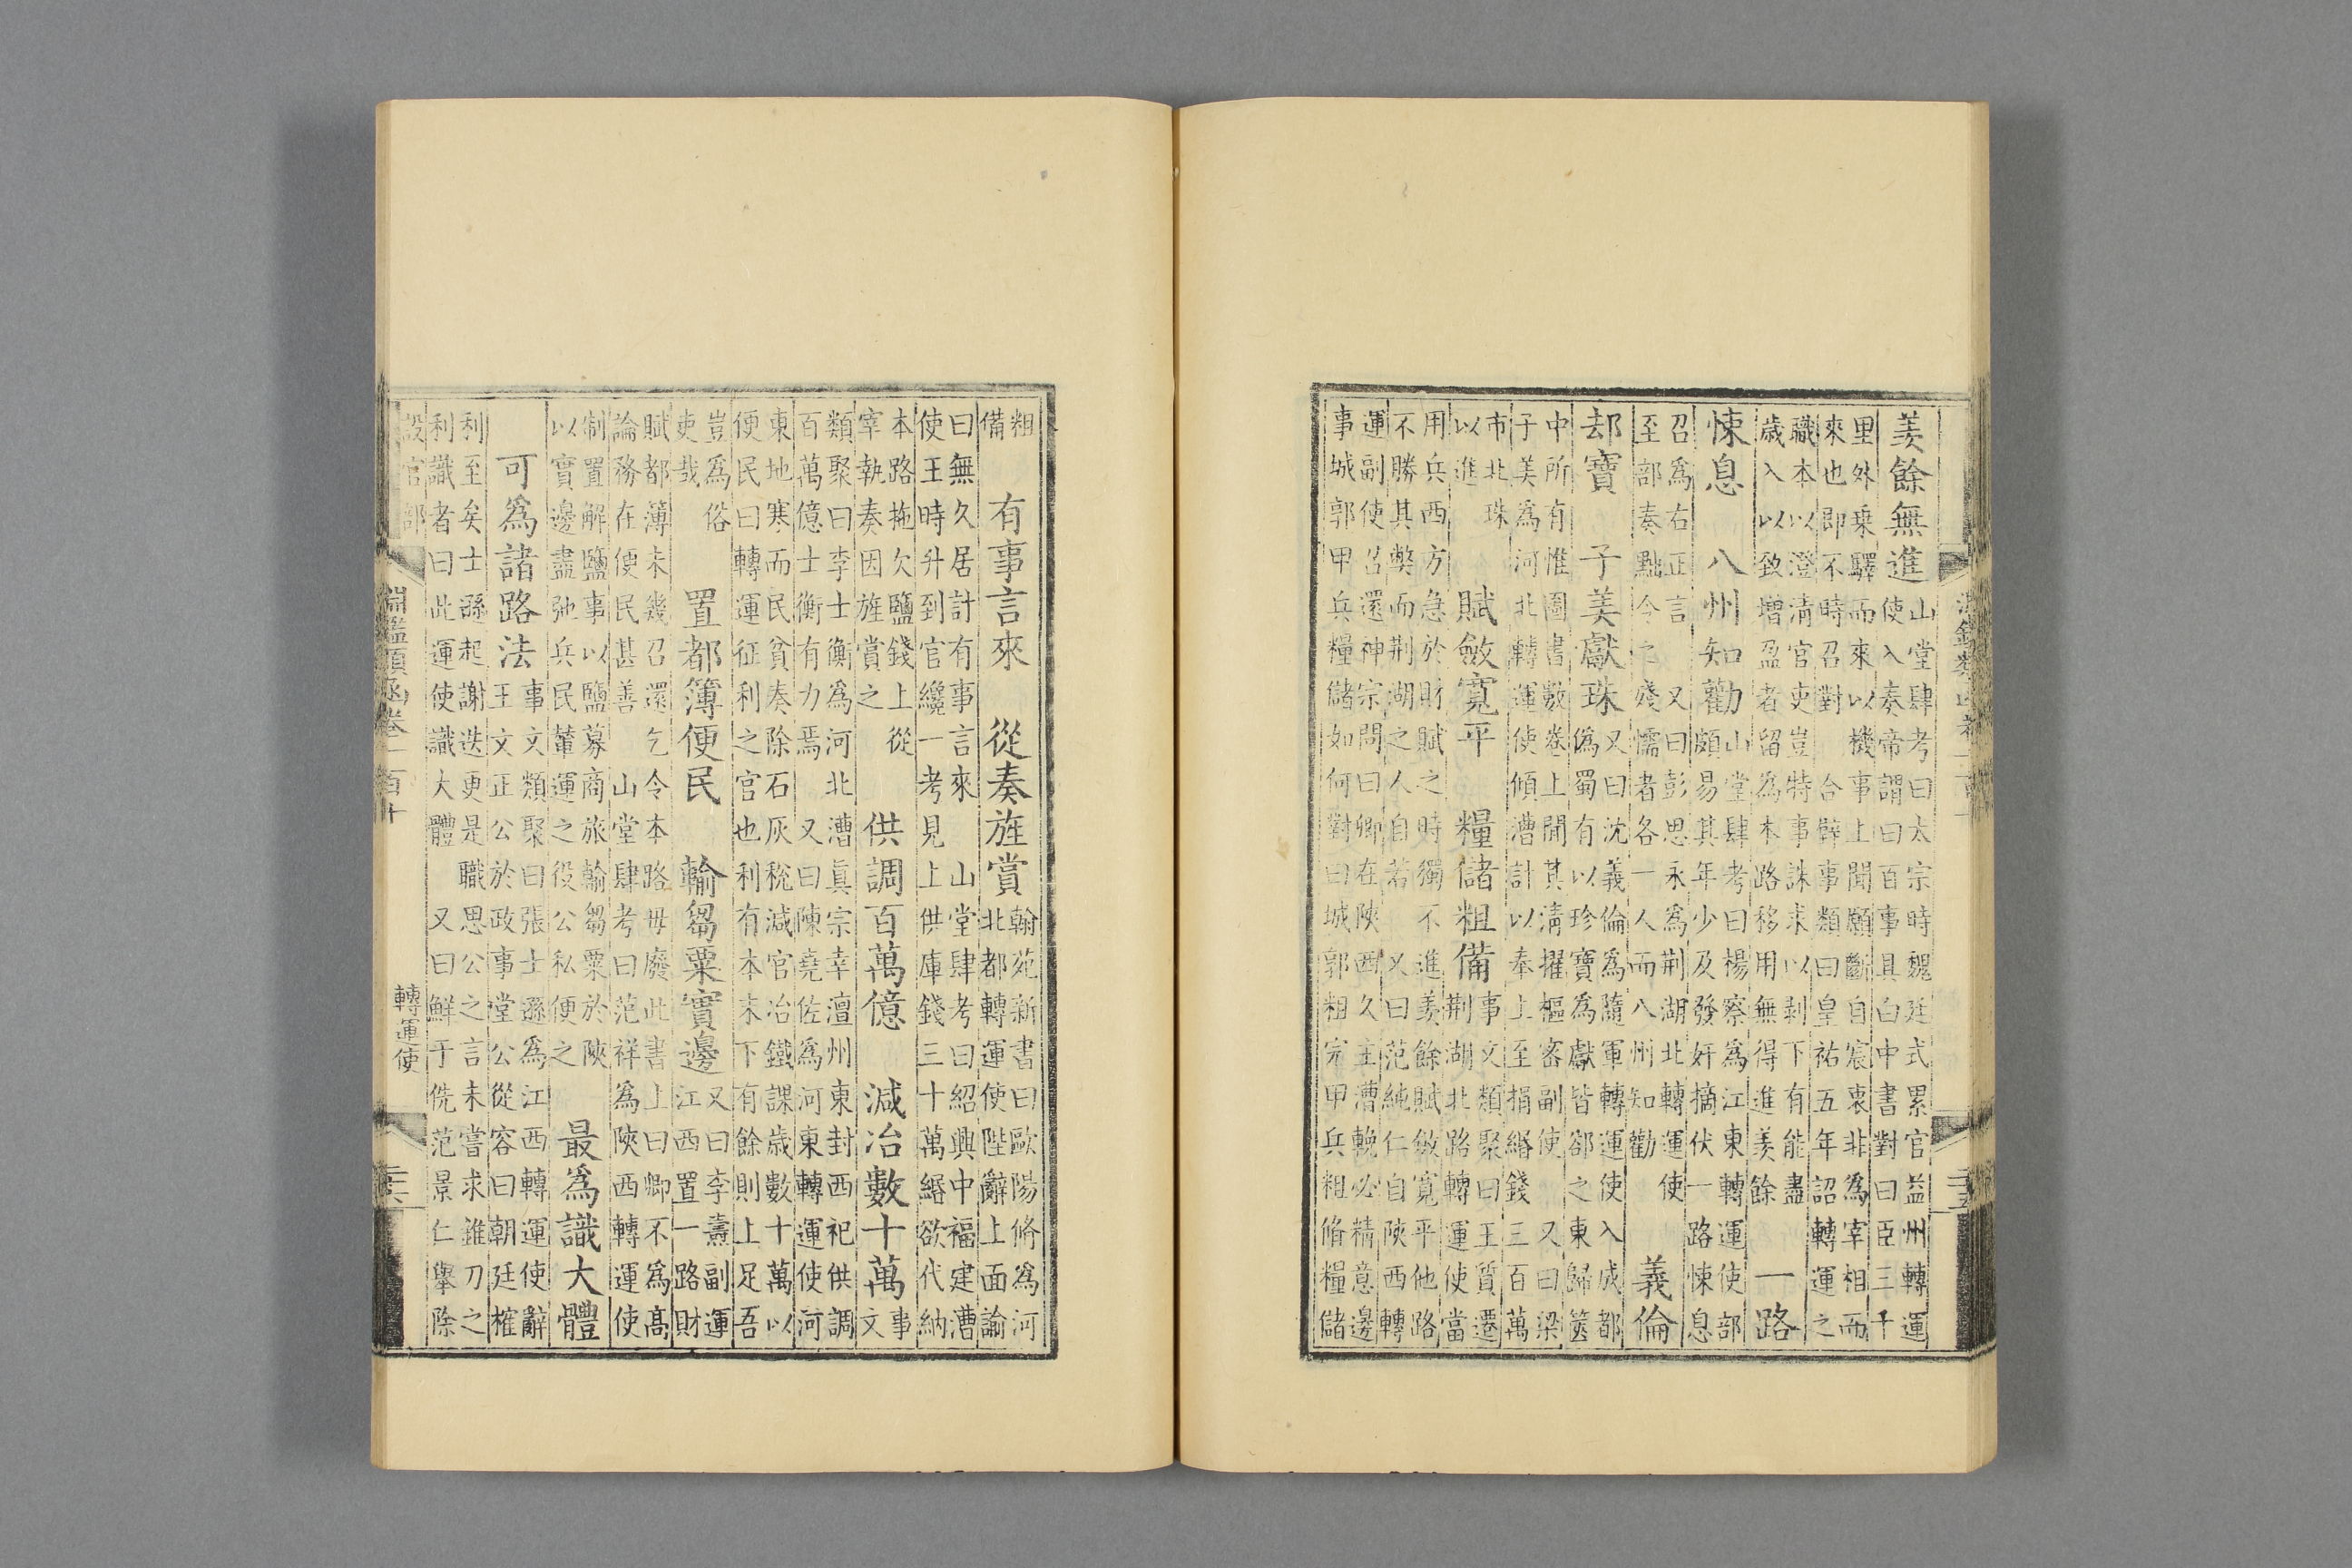 羡餘無進
山堂肆考曰太宗時魏廷式累官益州轉運
使入奏帝謂曰百事具白中書對曰臣三千
里外乗驛而來以機事上聞願斷自宸衷非為宰相而
來也即不時召對 合辟事類曰皇祐五年詔轉運之
職本以澄清官吏豈特事誅求以剥下有能盡
歲入以致增盈者留為本路移用無得進羡餘
一路
悚息 八州知勸
山堂肆考曰楊察為江東轉運使部
頗易其年少及發奸摘伏一路悚息
召為右正言 又曰彭思永為荆湖北轉運使
至部奏黜令之殘懦者各一人而八州知勸
義倫
却寶 子美獻珠
又曰沈義倫為隨軍轉運使入成都
偽蜀有以珍寶為獻皆郤之東歸篋
中所有惟圖書數卷上聞其清擢樞密副使 又曰梁
子美為河北轉運使傾漕計以奉上至捐緡錢三百萬
市北珠
以進
賦斂寛平 糧儲粗備
事文類聚曰王質遷
荆湖北路轉運使當
用兵西方急於財賦之時獨不進羡餘賦斂寛平他路
不勝其獘而荆湖之人自若 又曰范純仁自陜西轉
運副使召還神宗問曰卿在陜西久主漕輓必精意邊
事城郭甲兵糧儲如何對曰城郭粗完甲兵粗脩糧儲
粗
備
有事言來 從奏旌賞
翰苑新書曰歐陽脩為河
北都轉運使陛辭上面諭
曰無久居計有事言來 山堂肆考曰紹興中福建漕
使王時升到官纔一考見上供庫錢三十萬緡欲代納
本路拖欠鹽錢上從
宰執奏因旌賞之
供調百萬億 減冶數十萬
事
文
類聚曰李士衡為河北漕真宗幸亶州東封西祀供調
百萬億士衡有力焉 又曰陳堯佐為河東轉運使河
東地寒而民貧奏除石灰稅減官冶鐵課歲數十萬以
便民曰轉運征利之官也利有本末下有餘則上足吾
豈為俗
吏哉
置都簿便民 輸芻粟實邊
又曰李燾副運
江西置一路財
賦都簿未幾召還乞令本路毋廢此書上曰卿不為高
論務在便民甚善 山堂肆考曰范祥為陜西轉運使
制置解鹽事以鹽募商旅輸芻粟於陜
以實邊盡弛兵民輦運之役公私便之
最為識大體
可為諸路法
事文類聚曰張士遜為江西轉運使辭
王文正公於政事堂公從容曰朝廷榷
利至矣士遜起謝迭更是職思公之言未嘗求錐刀之
利識者曰此運使識大體 又曰鮮于侁范景仁舉除
設官部
淵鑑類函卷一百十
轉運使